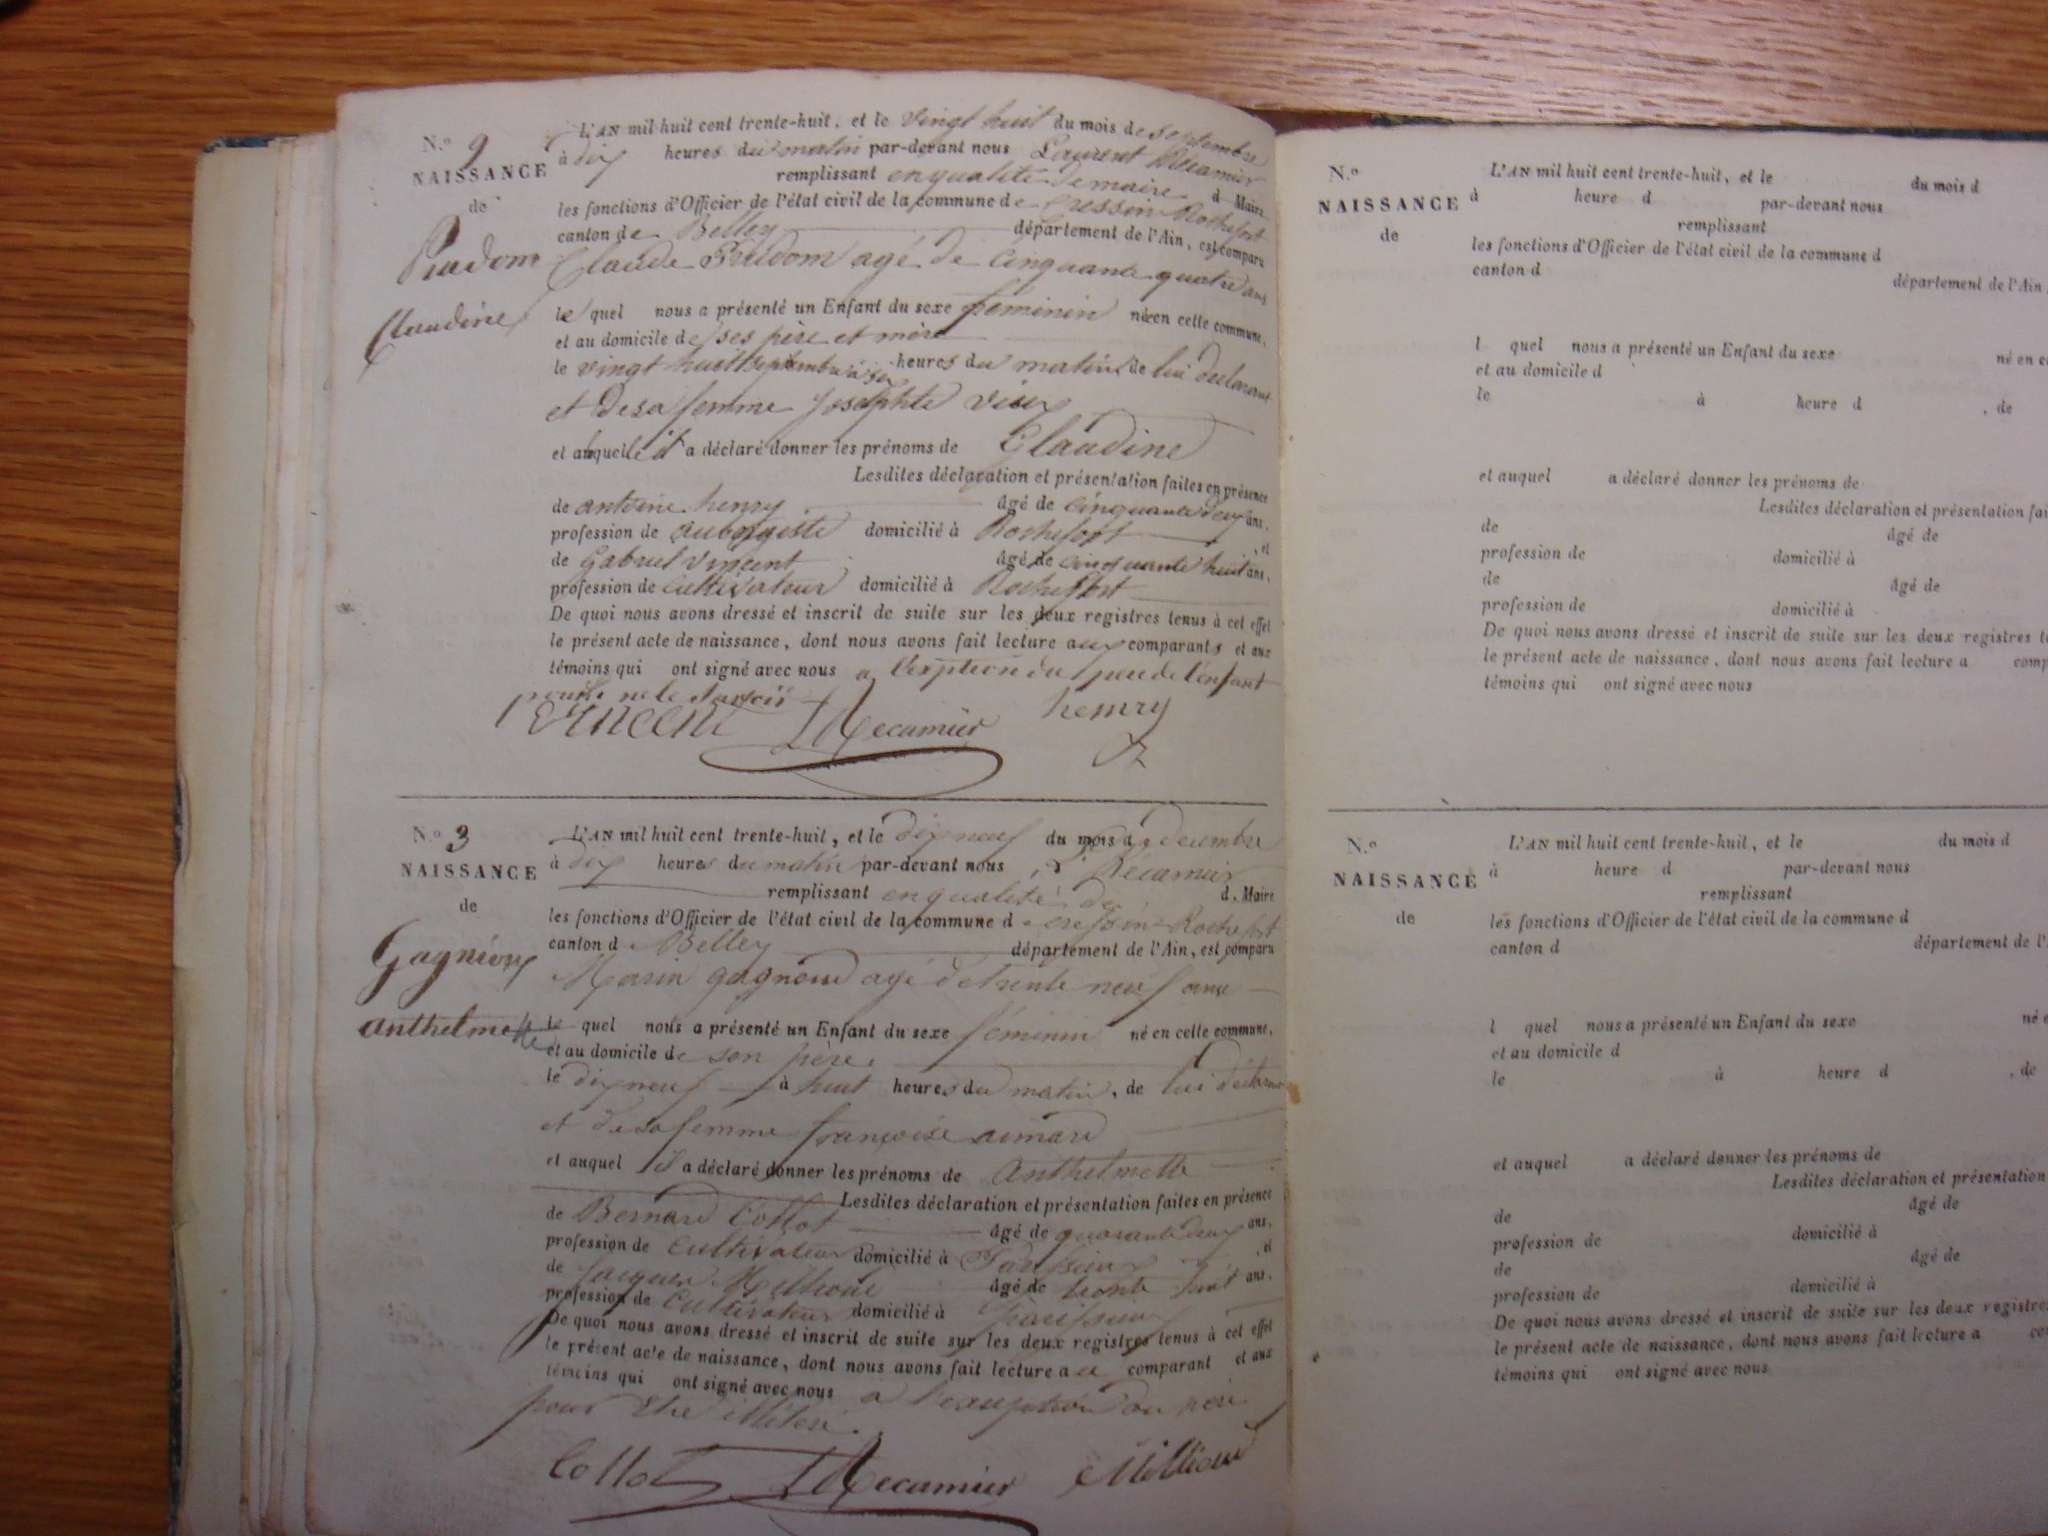 N.o 9
NAISSANCE
de
Prudom
Claudine
L'AN mil huit cent trente-huit, et le vingt huit du mois de septembre
à dix heures du matin par-devant nous Laurent Récamier
remplissant en qualité de maire d Maire
les fonctions d'Officier de l'état civil de la commune de Cressin Rochefort
canton de Belley département de l'Ain, est comparu
Claude Prudom agé de cinquante quatre ans
le quel nous a présenté un Enfant du sexe féminin né en cette commune,
et au domicile de ses père et mère
le vingt huit septembre à heures du matin de lui déclarant
et de sa femme Josephte
et auquel il a déclaré donner les prénoms de Claudine
Lesdites déclaration et présentation faites en présence
de antoine henry âgé de cinquante deux ans,
profession de aubergiste domicilié à Rochefort , et
de Gabriel Vincent âgé de cinquante huit ans,
profession de Cultivateur domicilié à Rochefort
De quoi nous avons dressé et inscrit de suite sur les deux registres tenus à cet effet
le présent acte de naissance, dont nous avons fait lecture aux comparants et aux
témoins qui ont signé avec nous a l'exption du père de l'enfant
pour ne le savoir
Vincent LRecamier henry
N.o 3
NAISSANCE
de
Gagnieux
anthelmette
L'AN mil huit cent trente-huit, et le dix neuf du mois de decembre
à dix heures du matin par-devant nous Récamier
remplissant en qualité de d. Maire
les fonctions d'Officier de l'état civil de la commune d e Cressin Rochefort
canton d e Belley département de l'Ain, est comparu
Marin gagnieux agé de trente neuf ans
le quel nous a présenté un Enfant du sexe féminin né en cette commune,
et au domicile de son père
le dix neuf à huit heures du matin, de lui déclarant
et de sa femme françoise aimard
et auquel il a déclaré donner les prénoms de anthelmette
Lesdites déclaration et présentation faites en présence
de Bernard Collot âgé de quarante deux ans,
profession de Cultivateur domicilié à Parissieux , et
de Jacques Millioud âgé de trente huit ans,
profession de Cultivateur domicilié à Parissieux
De quoi nous avons dressé et inscrit de suite sur les deux registres tenus à cet effet
le présent acte de naissance, dont nous avons fait lecture a u comparant et aux
témoins qui ont signé avec nous a l'exception du père
pour être illiteré.
Collot LRecamier Millioud
N.o
NAISSANCE
de
L'AN mil huit cent trente-huit, et le du mois d
à heure d par-devant nous
remplissant
les fonctions d'Officier de l'état civil de la commune d
canton d
département de l'Ain
l quel nous a présenté un Enfant du sexe né en c
et au domicile d
le à heure d , de
et auquel a déclaré donner les prénoms de
Lesdites déclaration et présentation fai
de âgé de
profession de domicilié à
de âgé de
profession de domicilié à
De quoi nous avons dressé et inscrit de suite sur les deux registres t
le présent acte de naissance, dont nous avons fait lecture a comp
témoins qui ont signé avec nous
N.o
NAISSANCE
de
L'AN mil huit cent trente-huit, et le du mois d
à heure d par-devant nous
remplissant
les fonctions d'Officier de l'état civil de la commune d
canton d département de l'
l quel nous a présenté un Enfant du sexe né
et au domicile d
le à heure d , de
et auquel a déclaré donner les prénoms de
Lesdites déclaration et présentation
de âgé de
profession de domicilié à
de âgé de
profession de domicilié à
De quoi nous avons dressé et inscrit de suite sur les deux registre
le présent acte de naissance, dont nous avons fait lecture a co
témoins qui ont signé avec nous